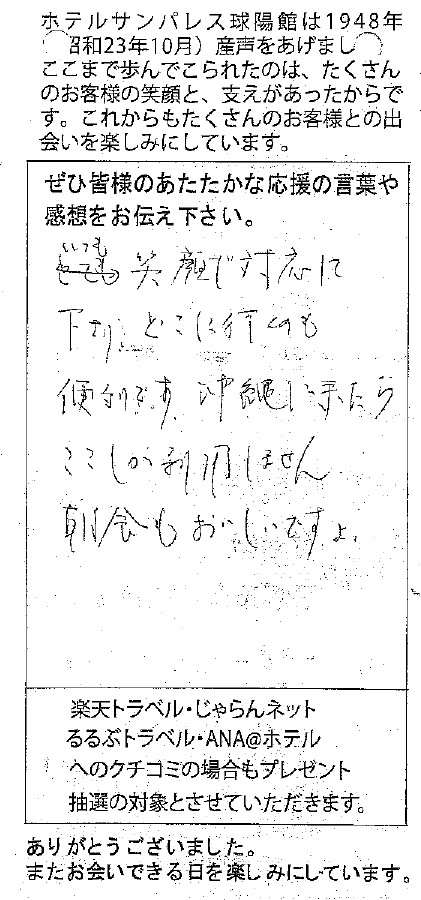 ホテルサンパレス球陽館は1948年
昭和23年10月）産声をあげまし
ここまで歩んでこられたのは、たくさん
のお客様の笑顔と、支えがあったからで
す。これからもたくさんのお客様との出
会いを楽しみにしています。
ぜひ皆様のあたたかな応援の言葉や
感想をお伝え下さい。
いつも
笑顔で対応に
下さり、どこに行くのも
便利です。沖縄に来たら
ここしか利用しません
朝食もおいしいですよ。
楽天トラベル・じゃらんネット
るるぶトラベル・ANA@ホテル
へのクチコミの場合もプレゼント
抽選の対象とさせていただきます。
ありがとうございました。
またお会いできる日を楽しみにしています。